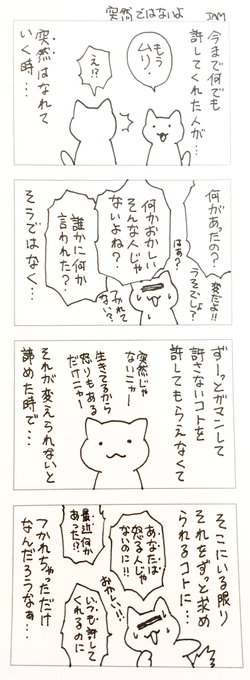 突然ではないよ
JAM
今まで何でも
許してくれた人が…
突然はなれて
いく時…
もう
ムリ。
え!?
何があったの?
変だよ!!
うそでしょ?
はぁ?
何かおかしい
そんな人じゃ
ないよね?
つかれて
ない?
誰かに何か
言われた?
そうではなく…
ずーっとガマンして
許さないコトを
許してもらえなくて
突然じゃ
ないニャー
生きてるから
怒りもある
だけニャー
それが変えられないと
諦めた時で…
そこにいる限り
それをずっと求め
られるコトに…
あなたは
怒る人じゃ
ないのに!!
最近何か
あった!?
おかしい!!
いつも許して
くれるのに
つかれちゃっただけ
なんだろうなぁ…